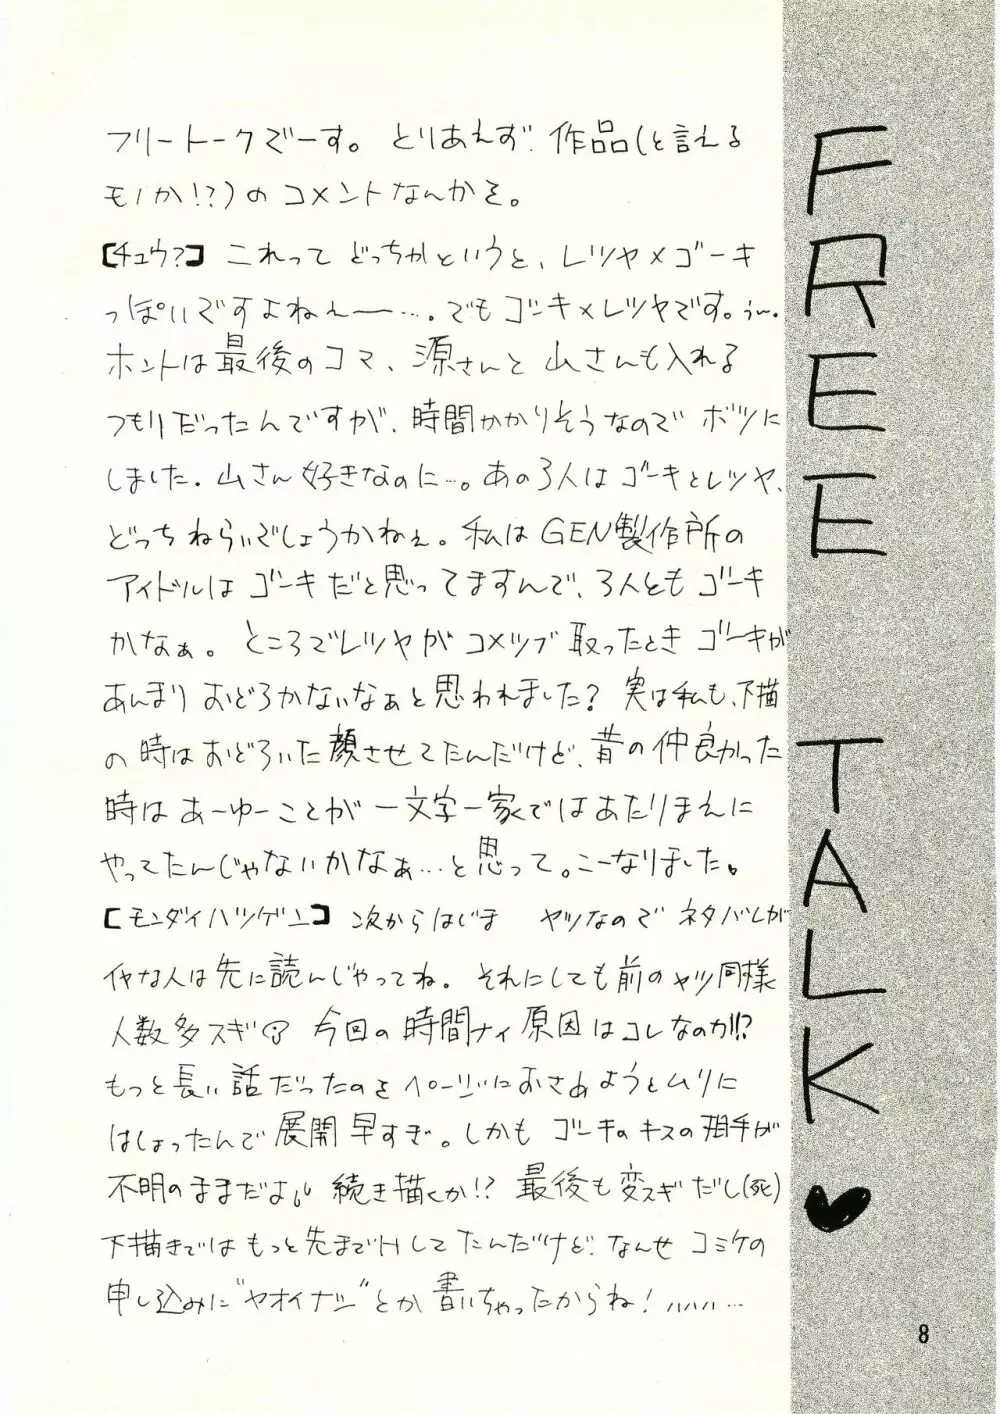 フリートークでーす。とりあえず作品(と言える
モノか!?)のコメントなんかを。
【チュウ?】これってどっちかというと、レツヤ×ゴーキ
っぽいですよねぇー…。でもゴーキ×レツヤです。うー。
ホントは最後のコマ、源さんと山さんも入れる
つもりだったんですが、時間かかりそうなのでボツに
しました。山さん好きなのに…。あの3人はゴーキとレツヤ、
どっちねらいでしょうかねぇ。私はGEN製作所の
アイドルはゴーキだと思ってますんで、3人ともゴーキ
かなぁ。ところでレツヤがコメツブ取ったときゴーキが
あんまりおどろかないなぁと思われました?実は私も、下描
の時はおどろいた顔させてたんだけど、昔の仲良かった
時はあーゆーことが一文字一家ではあたりまえに
やってたんじゃないかなぁ…と思って。こーなりました。
【モンダイハツゲン】次からはじま ヤツなのでネタバレが
イヤな人は先に読んじゃってね。それにしても前のヤツ同様
人数多スギ 今回の時間ナイ原因はコレなのか!?
もっと長い話だったのをページにおさめようとムリに
はしょったんで展開早すぎ。しかもゴーキのキスの相手が
不明のままだよ 続き描くか!?最後も変スギだし(死)
下描きではもっと先までHしてたんだけど、なんせコミケの
申し込みに"ヤオイナシ"とか書いちゃったからね!ハハハハ…
FREE TALK♥
8